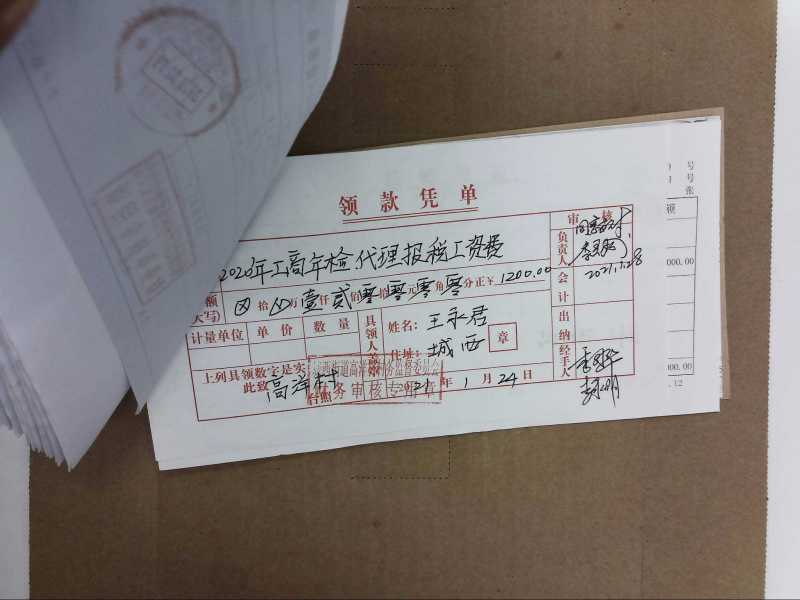 领款凭单
审核
2020年工商年检代理报税工资费
负责人
同意支付
2021.1.28
额
大写)
⊗拾⊗万壹仟贰佰零拾零元零角零分正¥1200.00
会计
计量单位 单价 数量
具领人盖章
姓名: 王永君
住址: 城西
章
出纳
上列具领数字是实
此致
高洋村
台照
2021年1月24日
财务审核专用章
经手人
号
号
张
额
000.00
000.00
.12